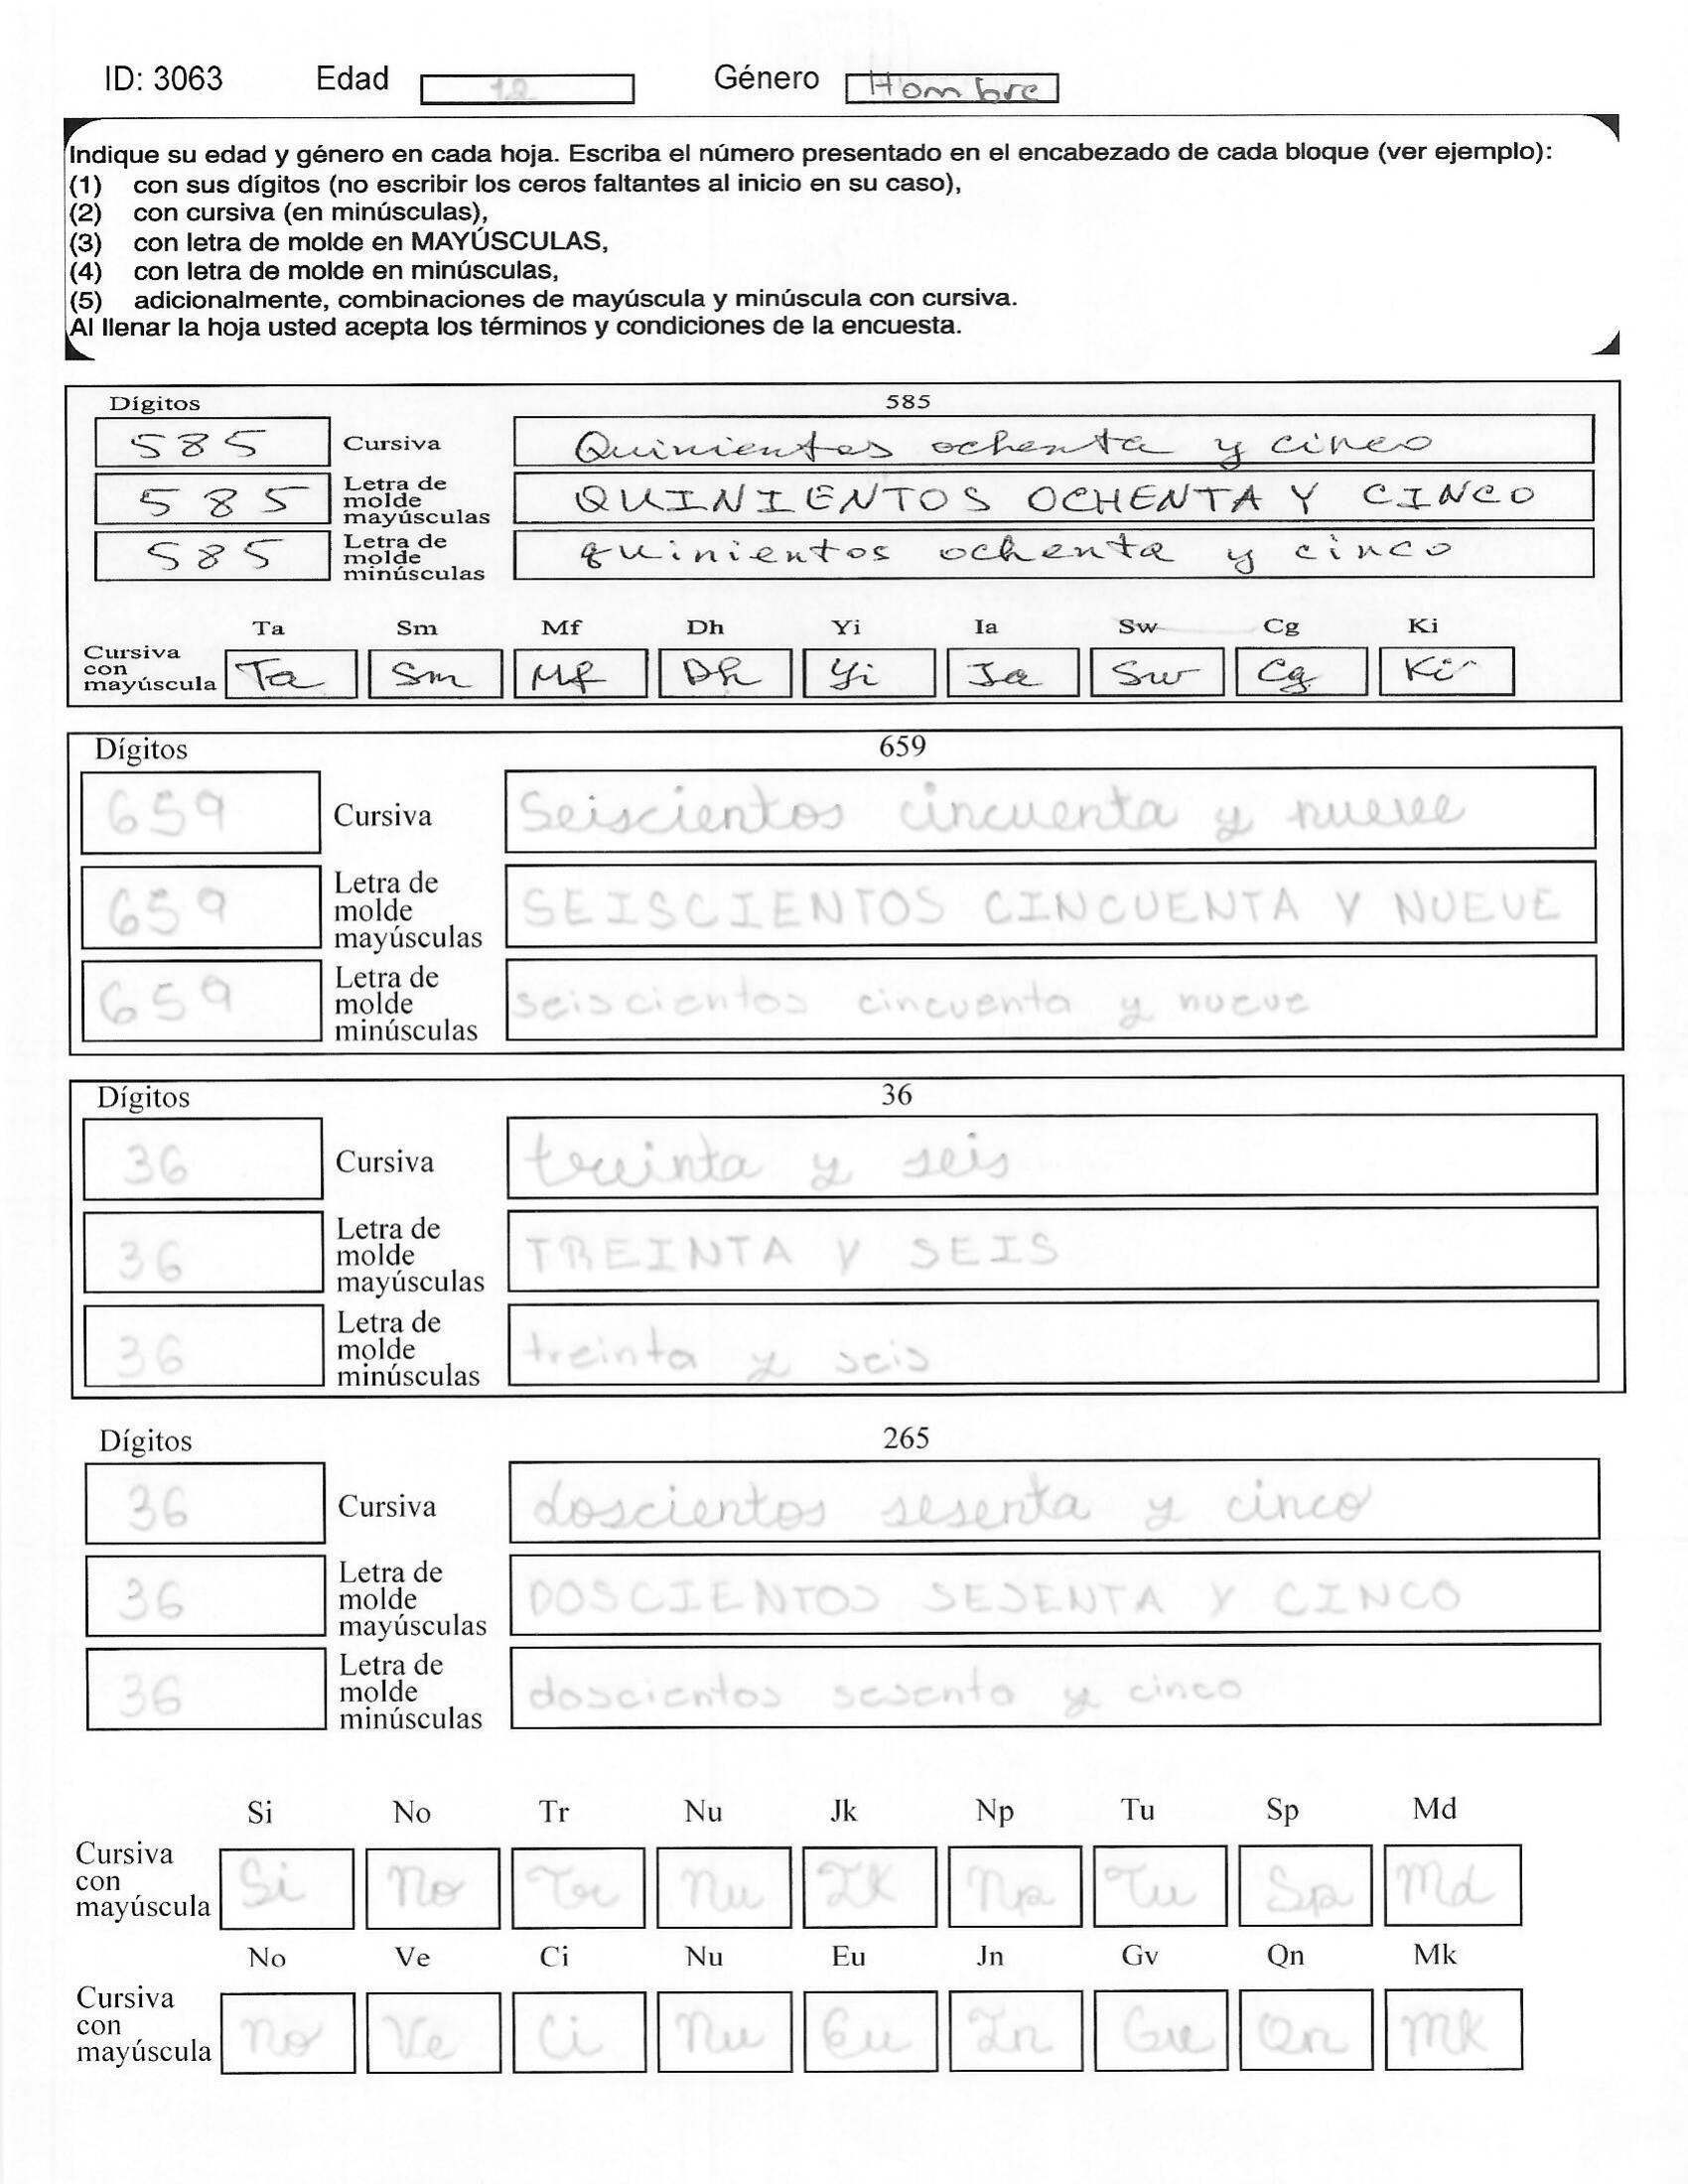 ID: 3063 Edad 12 Género Hombre
Indique su edad y género en cada hoja. Escriba el número presentado en el encabezado de cada bloque (ver ejemplo):
(1) con sus dígitos (no escribir los ceros faltantes al inicio en su caso),
(2) con cursiva (en minúsculas),
(3) con letra de molde en MAYÚSCULAS,
(4) con letra de molde en minúsculas,
(5) adicionalmente, combinaciones de mayúscula y minúscula con cursiva.
Al llenar la hoja usted acepta los términos y condiciones de la encuesta.
Dígitos 585
585 Cursiva Quinientos ochenta y cinco
585 Letra de molde mayúsculas QUINIENTOS OCHENTA Y CINCO
585 Letra de molde minúsculas quinientos ochenta y cinco
Ta Sm Mf Dh Yi Ia Sw Cg Ki
Cursiva con mayúscula Ta Sm Mf Dh Yi Ia Sw Cg Ki
Dígitos 659
659 Cursiva Seiscientos cincuenta y nueve
659 Letra de molde mayúsculas SEISCIENTOS CINCUENTA Y NUEVE
659 Letra de molde minúsculas seiscientos cincuenta y nueve
Dígitos 36
36 Cursiva treinta y seis
36 Letra de molde mayúsculas TREINTA Y SEIS
36 Letra de molde minúsculas treinta y seis
Dígitos 265
36 Cursiva doscientos sesenta y cinco
36 Letra de molde mayúsculas DOSCIENTOS SESENTA Y CINCO
36 Letra de molde minúsculas doscientos sesenta y cinco
Si No Tr Nu Jk Np Tu Sp Md
Cursiva con mayúscula Si No Tr Nu Jk Np Tu Sp Md
No Ve Ci Nu Eu Jn Gv Qn Mk
Cursiva con mayúscula No Ve Ci Nu Eu Jn Gv Qn Mk